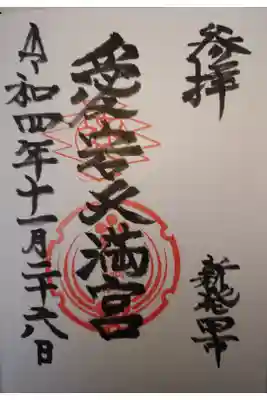 参拝
新発田市
愛宕天満宮
令和四年十一月二十六日